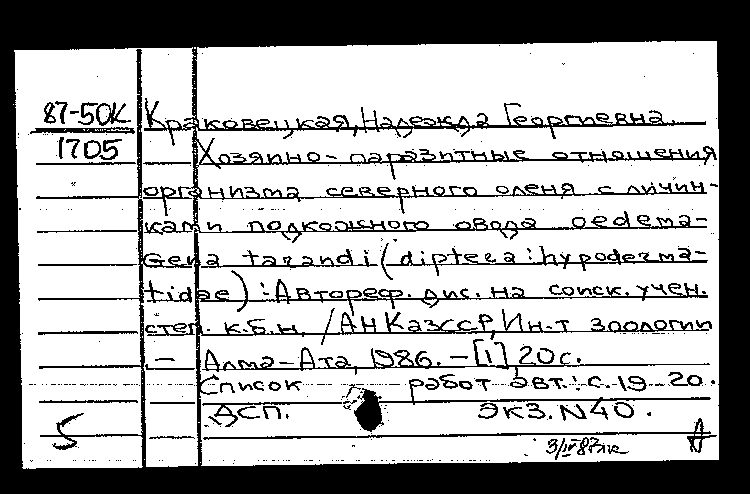 87-50К Краковецкая, Надежда Георгиевна.
1705 Хозяинно-паразитные отношения
организма северного оленя с личин-
ками подкожного овода oedema-
Gena tarandi (diptera: hypoderma-
tidae) : Автореф. дис. на соиск. учен.
степ. к.б.н. /АН КазССР, Ин-т зоологии
.- Алма-Ата, 1986. - [1], 20с.
Список работ авт.: с. 19-20.
ДСП. Экз. N40.
5
3/IV 87